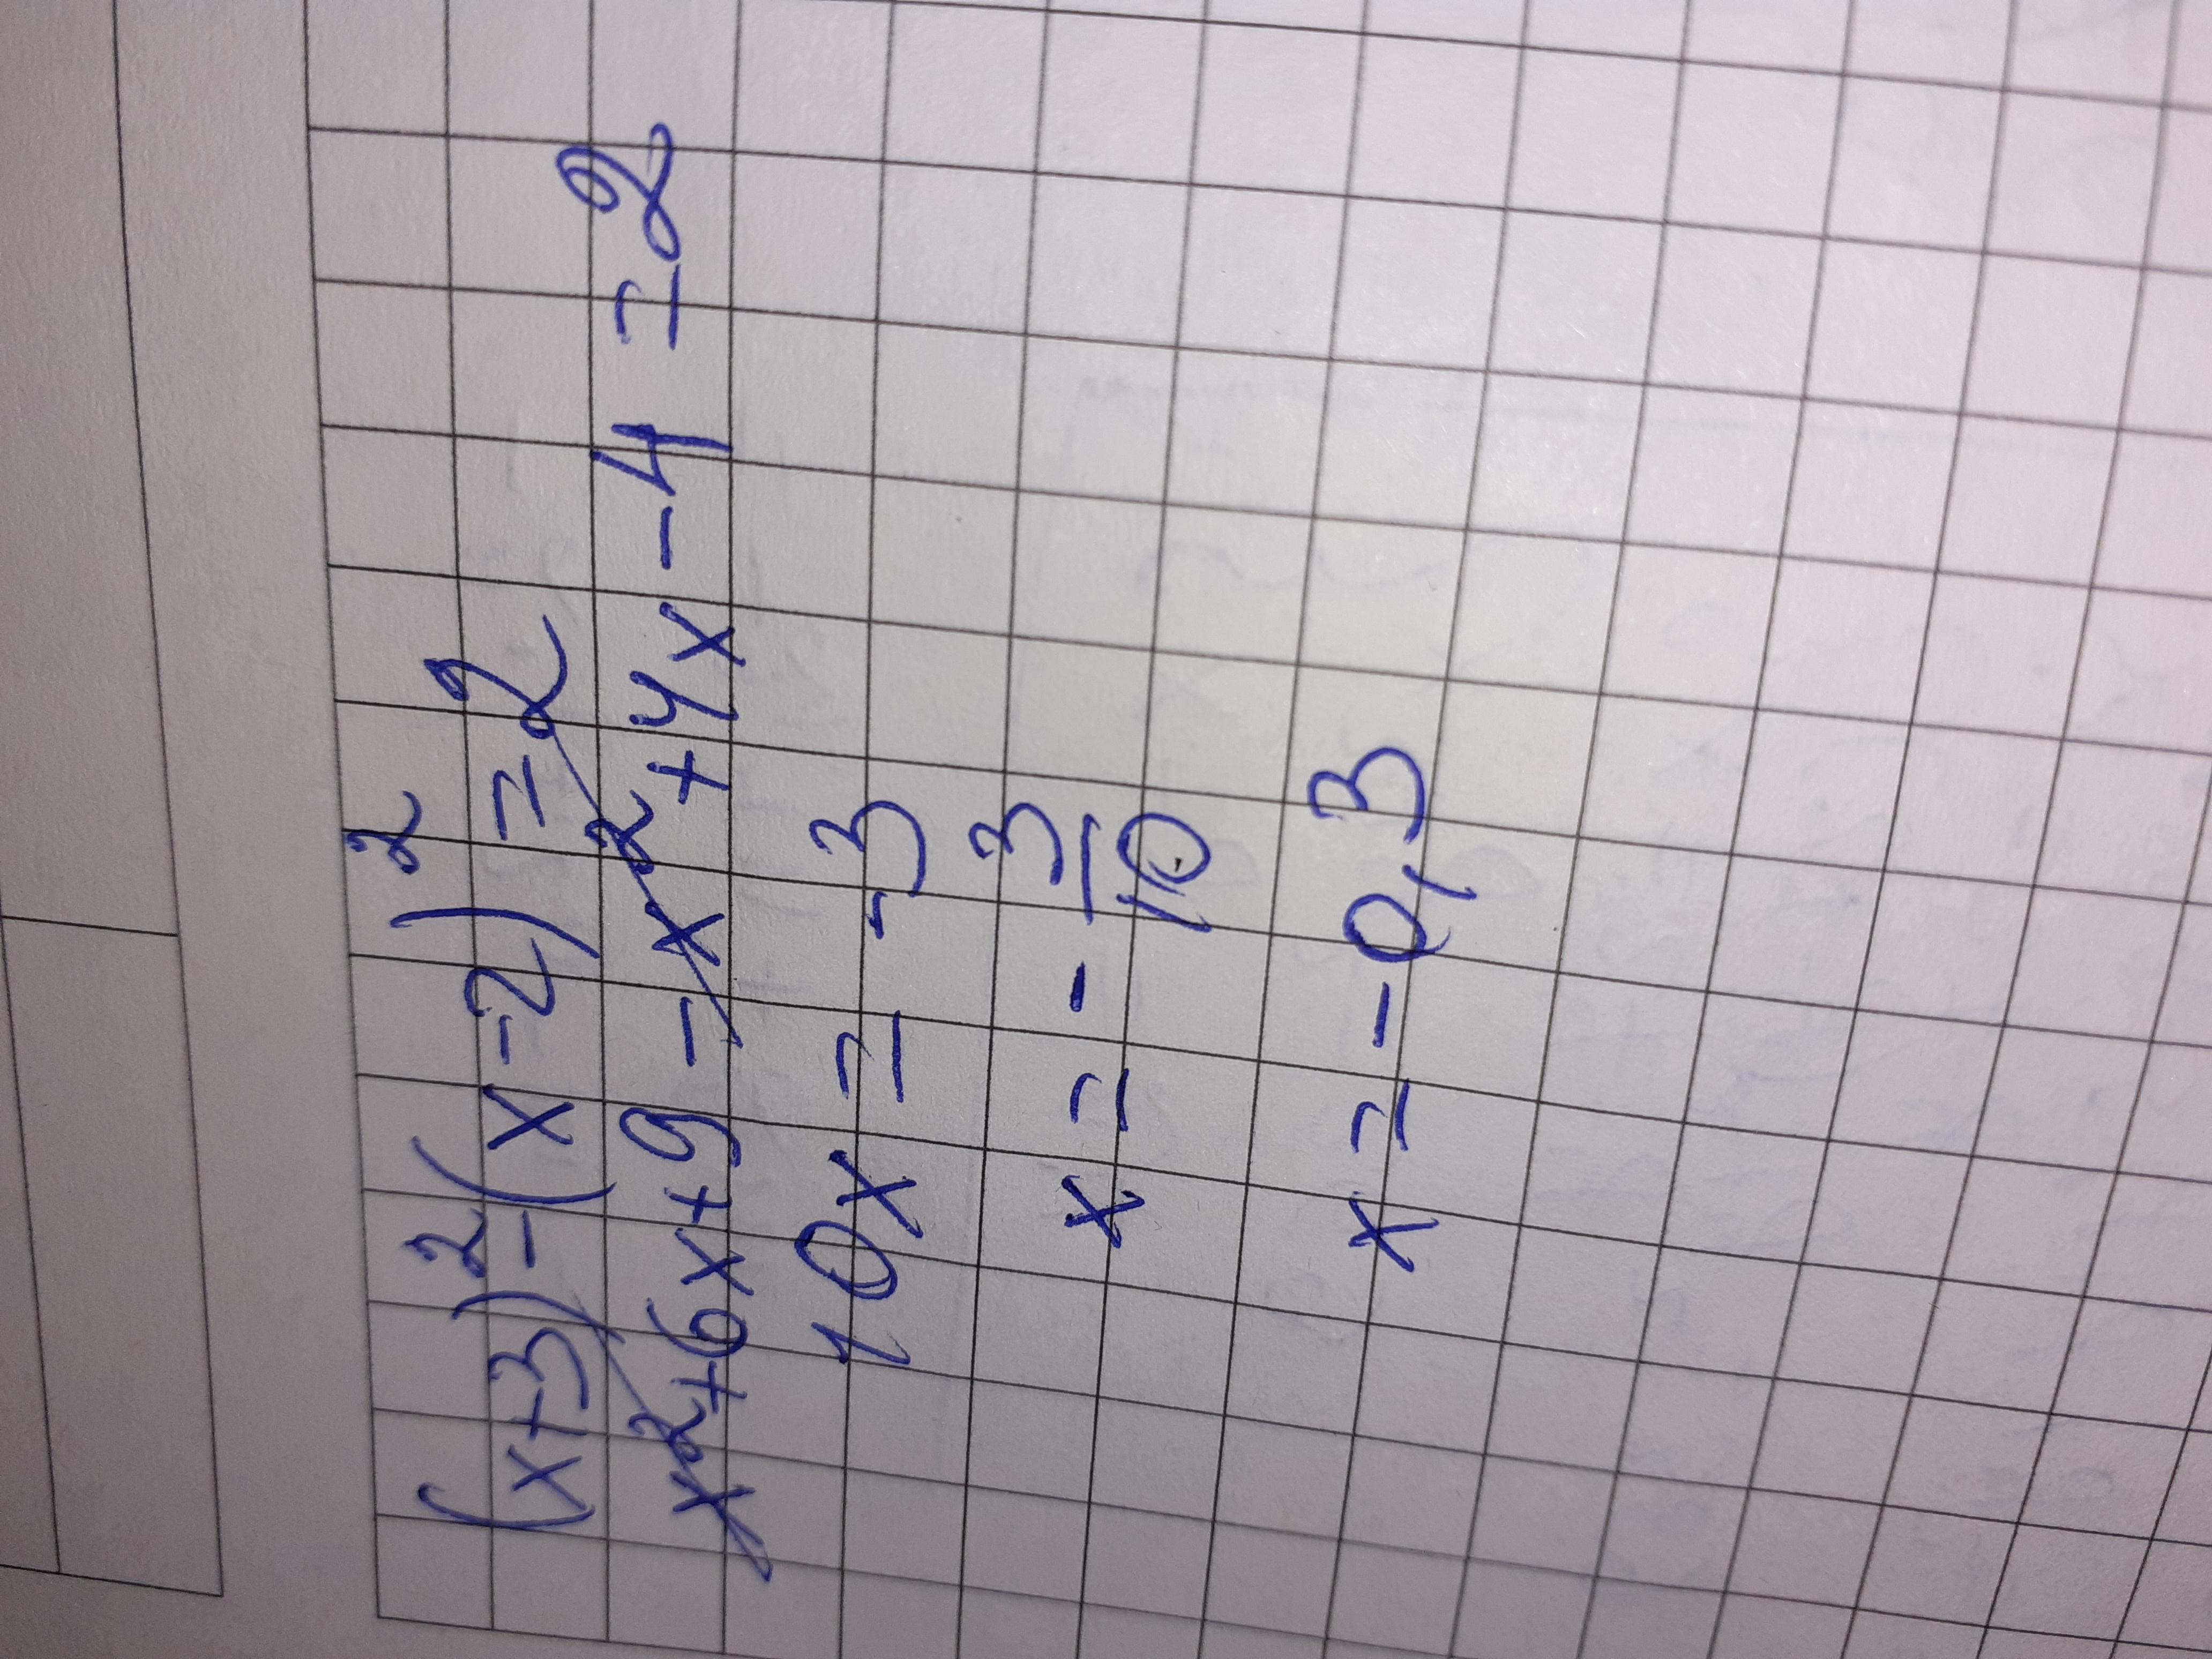 (x+3)²-(x-2)²=2
x²+6x+9-x²+4x-4=2
10x=-3
x=-3/10
x=-0,3